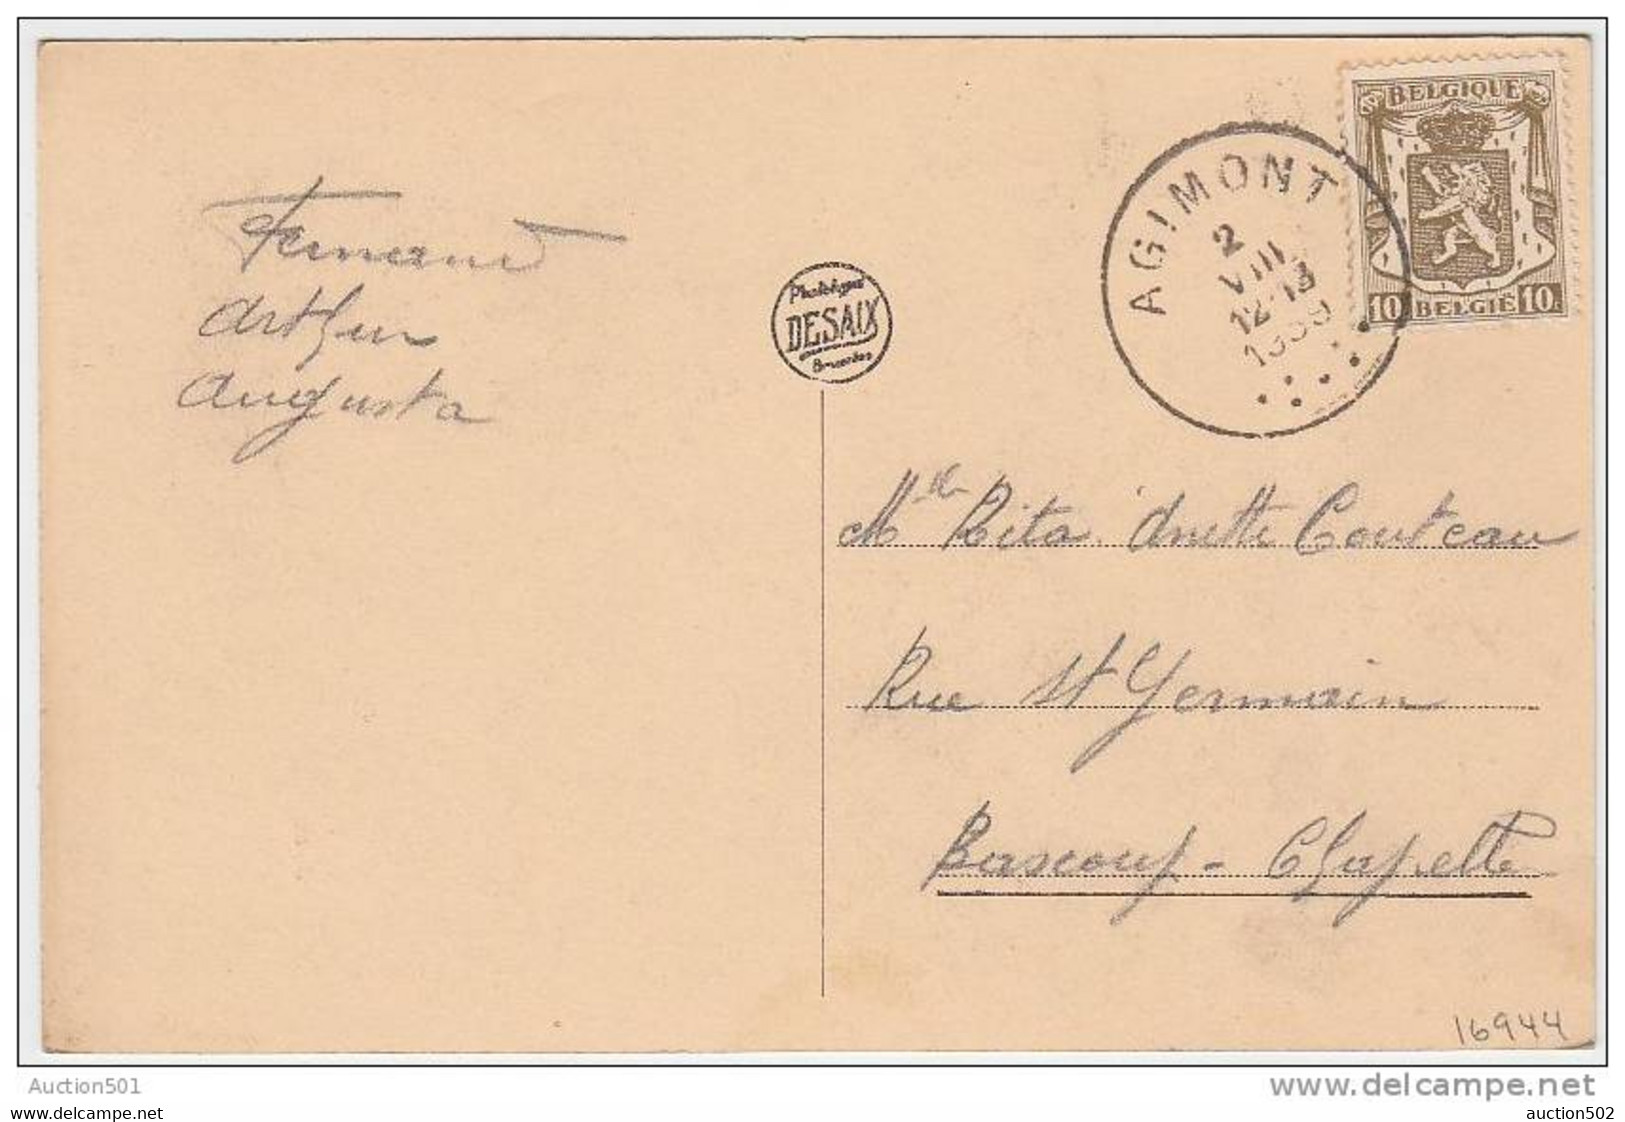 BELGIQUE
10 BELGIË 10
AGIMONT
2
VIII
12-13
1939
Fernand
Arthur
Augusta
DESAIX
Bruxelles
Mlle Rita Anette Couteau
Rue St Germain
Bascoup - Chapelle
16944
Auction501
www.delcampe.net
www.delcampe.net
auction502